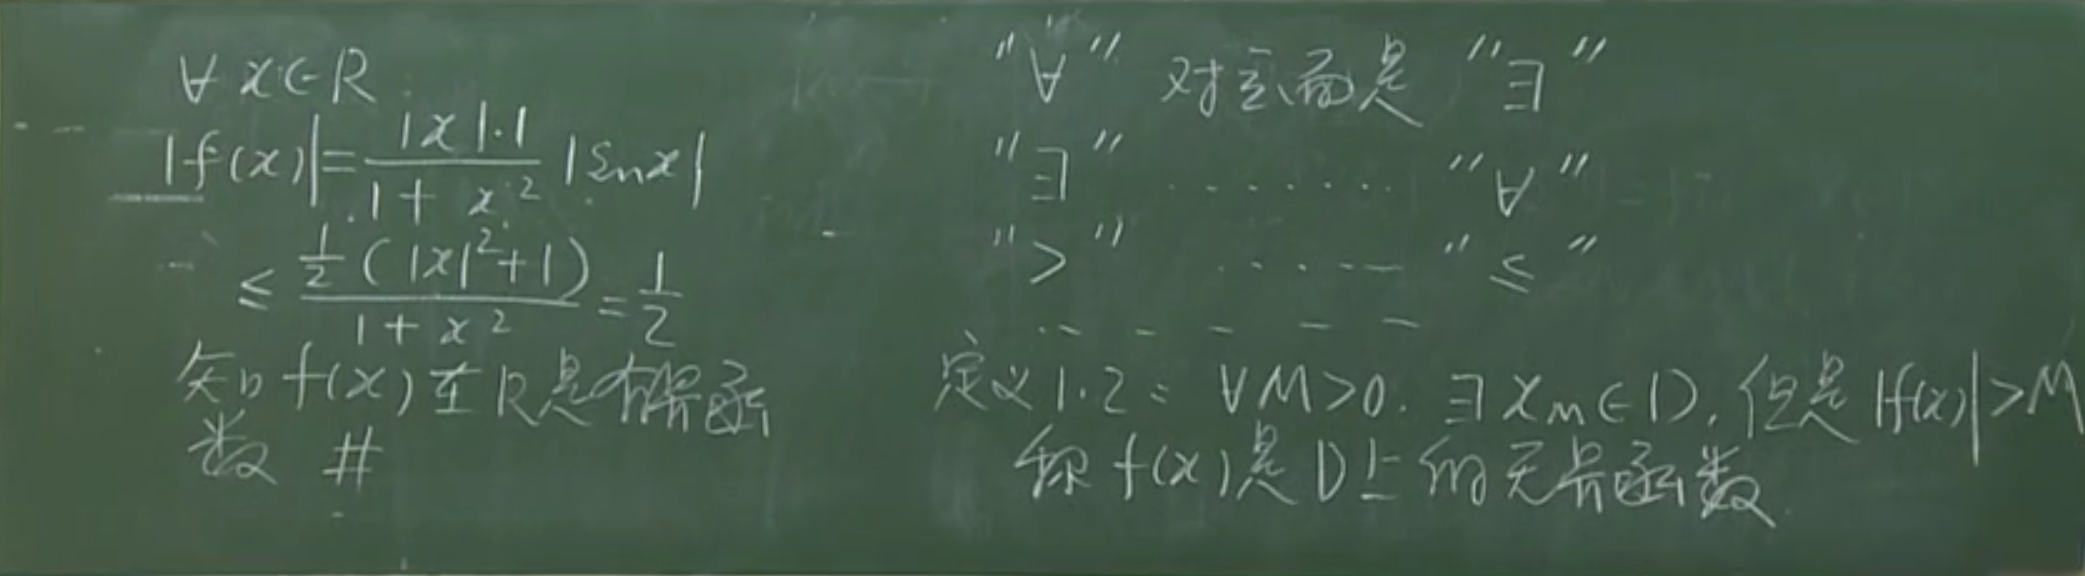 ∀ x ∈ R
|f(x)| = \frac{|x|·1}{1 + x^2} |Sinx|
≤ \frac{\frac{1}{2}(|x|^2+1)}{1 + x^2} = \frac{1}{2}
知 f(x) 在 R 是有界函
数 #
"∀" 对立面是 "∃"
"∃" ........ "∀"
">" ........ "≤"
.. - - - -
定义1.2: ∀M>0. ∃ x_m ∈ D, 但是 |f(x)|>M
称 f(x) 是 D 上的无界函数.